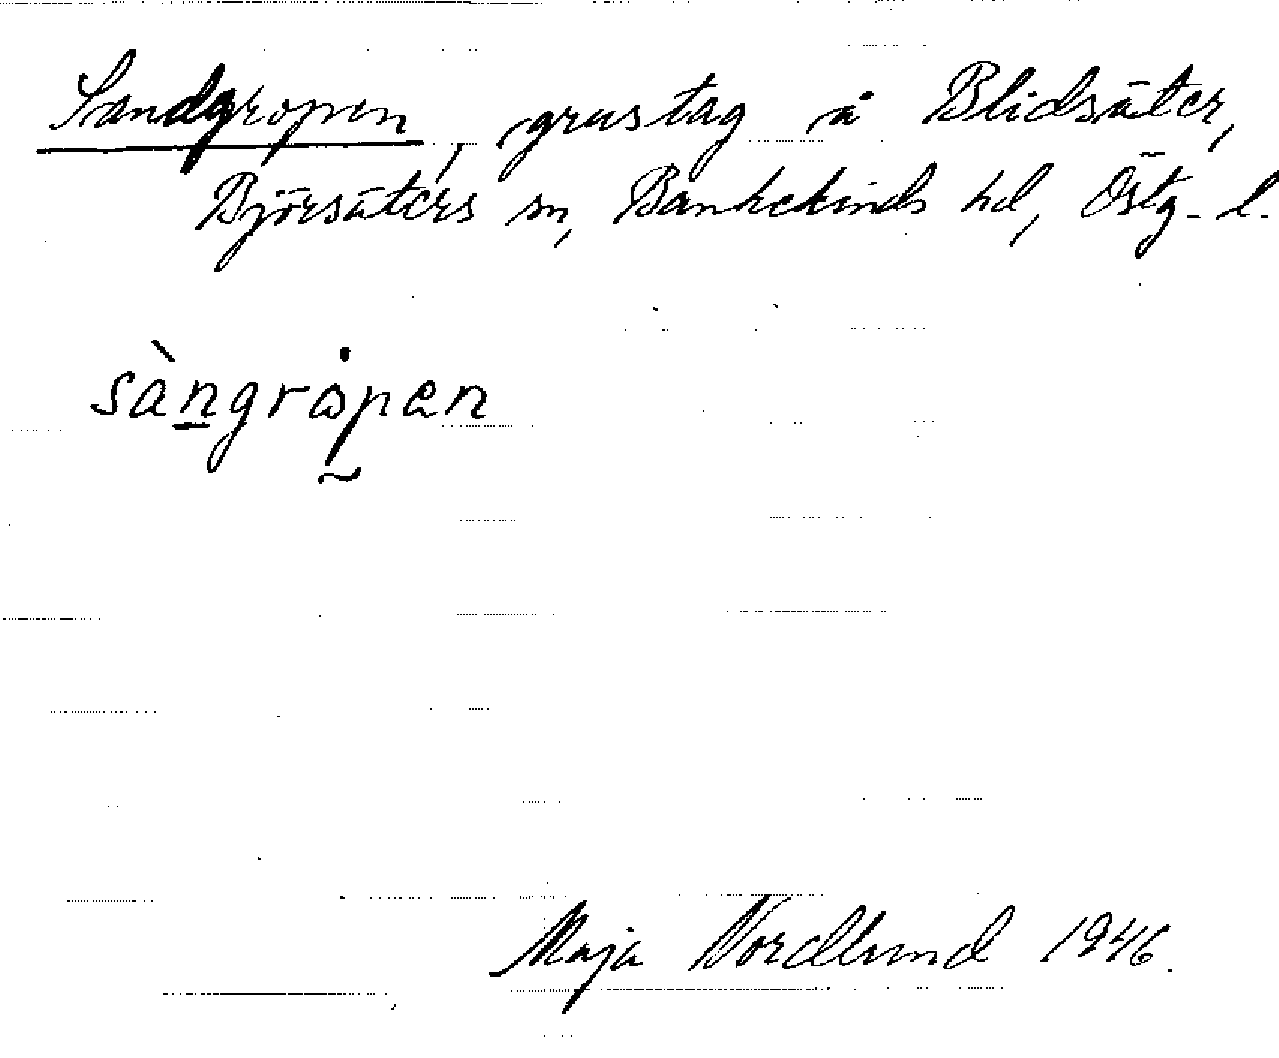 Sandgropen, grustag å Blidsäter,
Björsäters sn, Bankekinds hd, Östg. l.
sàngråpen
Maja Nordlund 1946.